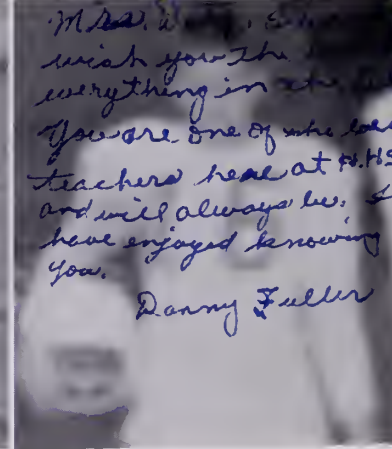 Mrs. W
wish you the
everything in the
You are one of the best
teachers here at H.HS
and will always be. I
have enjoyed knowing
you.
Danny Fuller